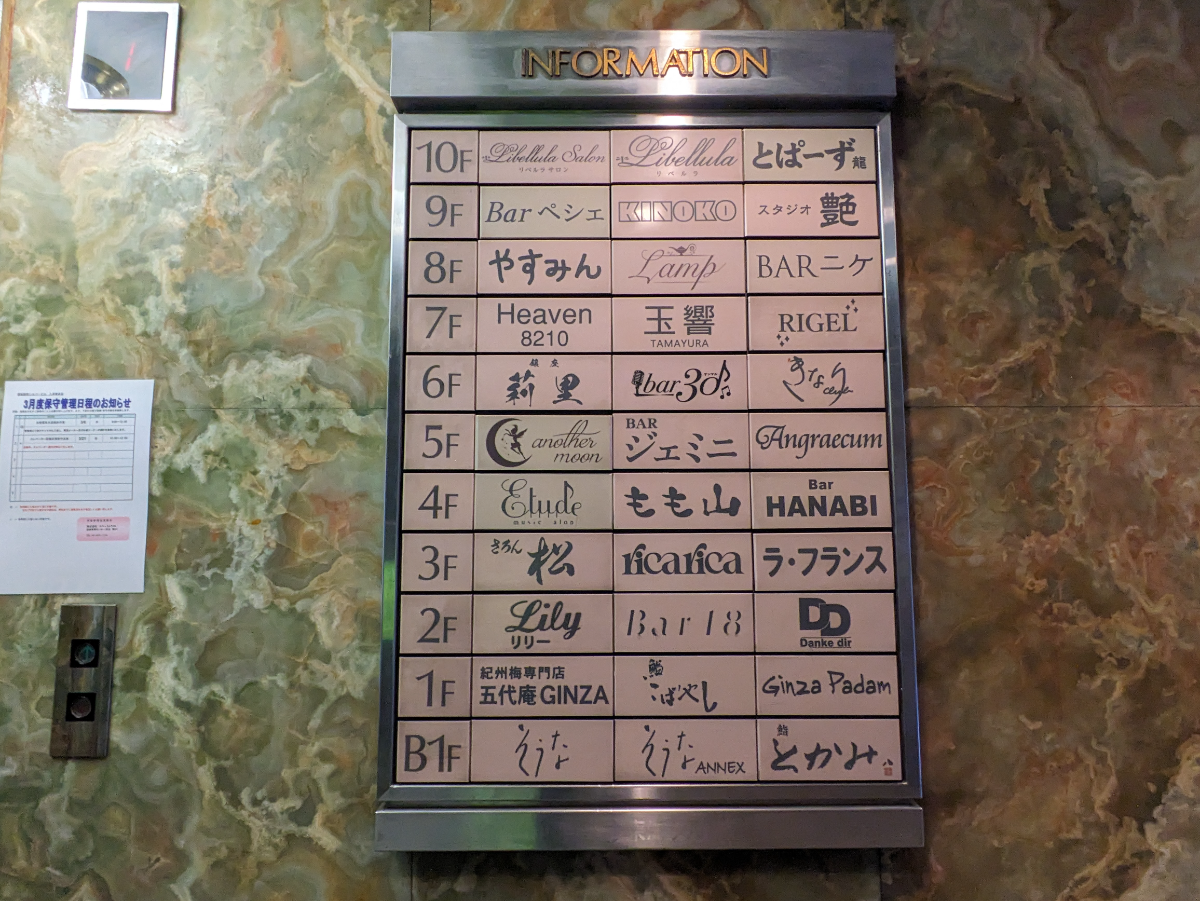 INFORMATION
10F
Libellula Salon
リベルラ サロン
Libellula
リベルラ
とぱーず 龍
9F
Bar ペシェ
KINOKO
スタジオ 艶
8F
やすみん
Lamp
BARニケ
7F
Heaven
8210
玉響
TAMAYURA
RIGEL
6F
銀座
莉里
bar30
きなり
5F
another
moon
BAR
ジェミニ
Angraecum
4F
Etude
もも山
Bar
HANABI
3F
さろん 松
ricarica
ラ・フランス
2F
Lily
リリー
Bar 18
DD
Danke dir
1F
紀州梅専門店
五代庵 GINZA
鮨
こばやし
Ginza Padam
B1F
そうな
そうな ANNEX
鮨
とかみ
3月度保守管理日程のお知らせ